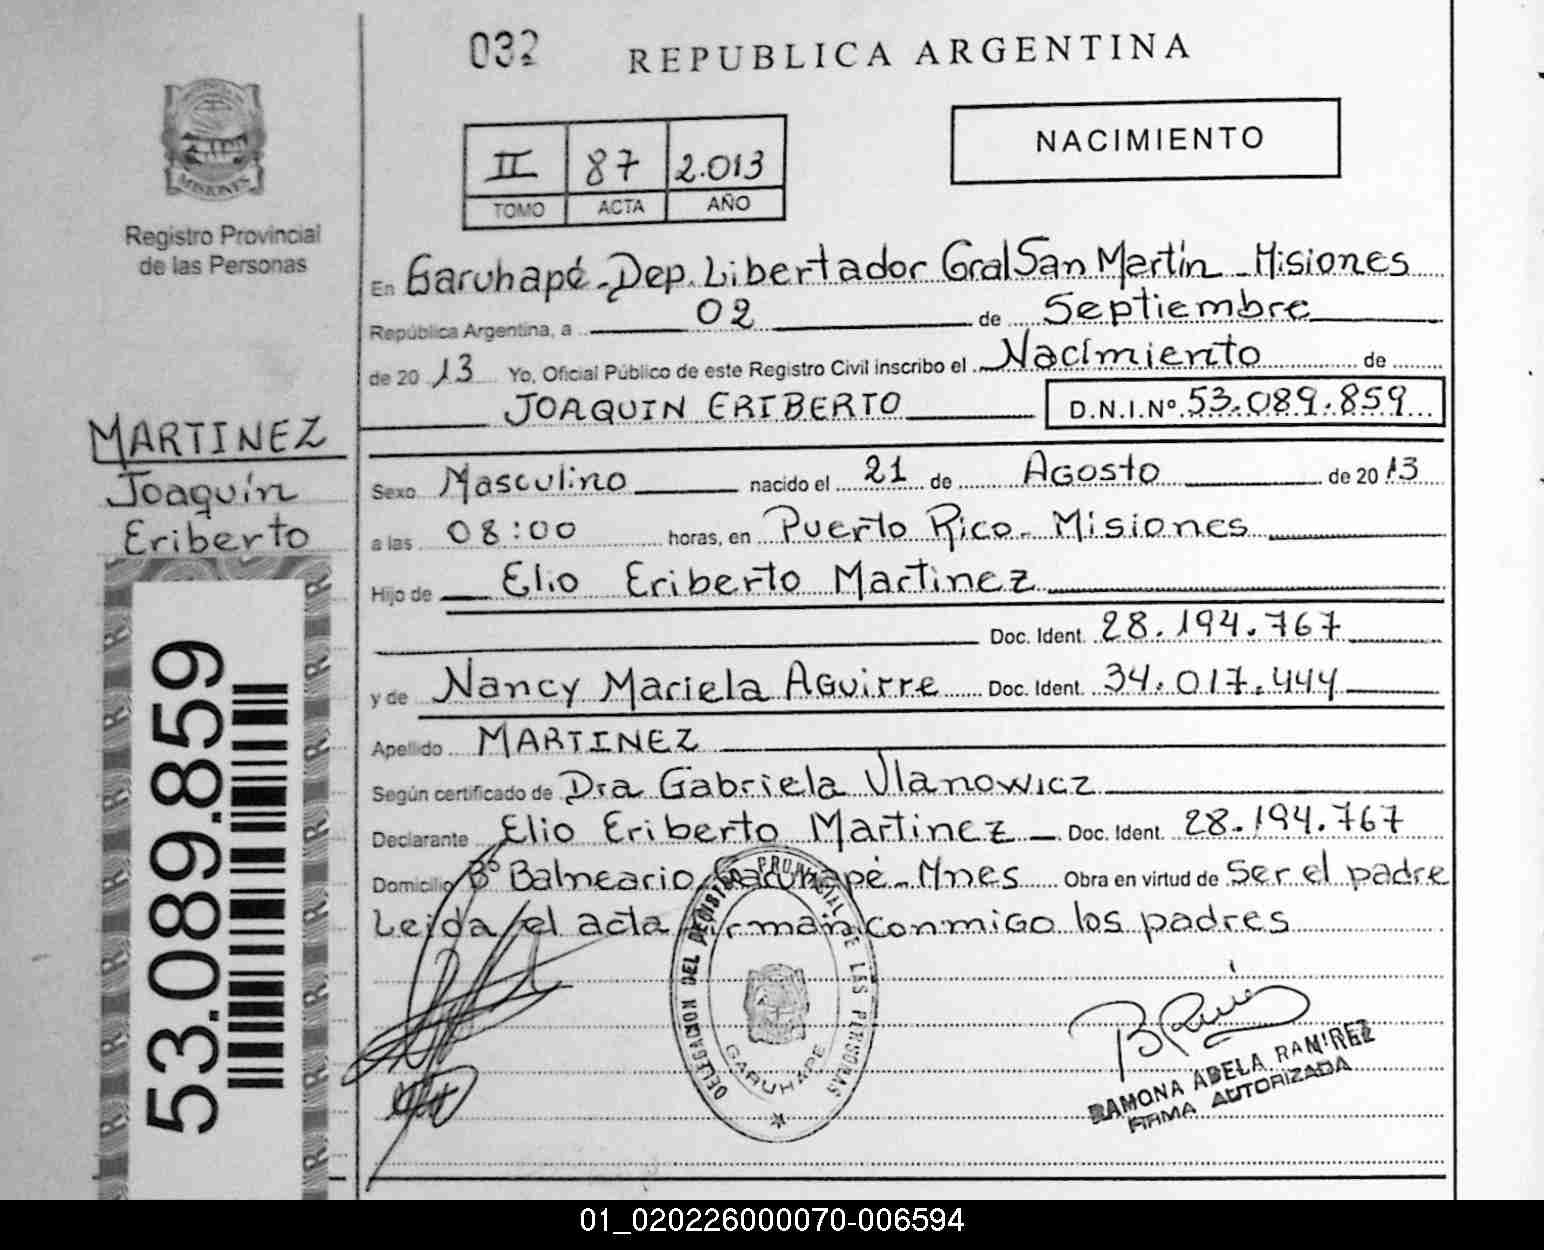 032
REPUBLICA ARGENTINA
MISIONES
Registro Provincial
de las Personas
II 87 2.013
TOMO ACTA AÑO
NACIMIENTO
En Garuhapé - Dep. Libertador Gral San Martín - Misiones
República Argentina, a 02 de Septiembre
de 20 13 Yo, Oficial Público de este Registro Civil inscribo el Nacimiento de
JOAQUIN ERIBERTO D.N.I.Nº 53.089.859
MARTINEZ
Joaquín
Eriberto
53.089.859
Sexo Masculino nacido el 21 de Agosto de 20 13
a las 08:00 horas, en Puerto Rico - Misiones
Hijo de Elio Eriberto Martinez
Doc. Ident. 28.194.767
y de Nancy Mariela Aguirre Doc. Ident. 34.017.444
Apellido MARTINEZ
Según certificado de Dra Gabriela Ulanowicz
Declarante Elio Eriberto Martinez Doc. Ident. 28.194.767
Domicilio Bº Balneario Garuhapé - Mnes Obra en virtud de Ser el padre
Leida el acta firman conmigo los padres
DELEGACION DEL REGISTRO PROVINCIAL DE LAS PERSONAS
GARUHAPE
RAMONA ADELA RAMIREZ
FIRMA AUTORIZADA
01_020226000070-006594